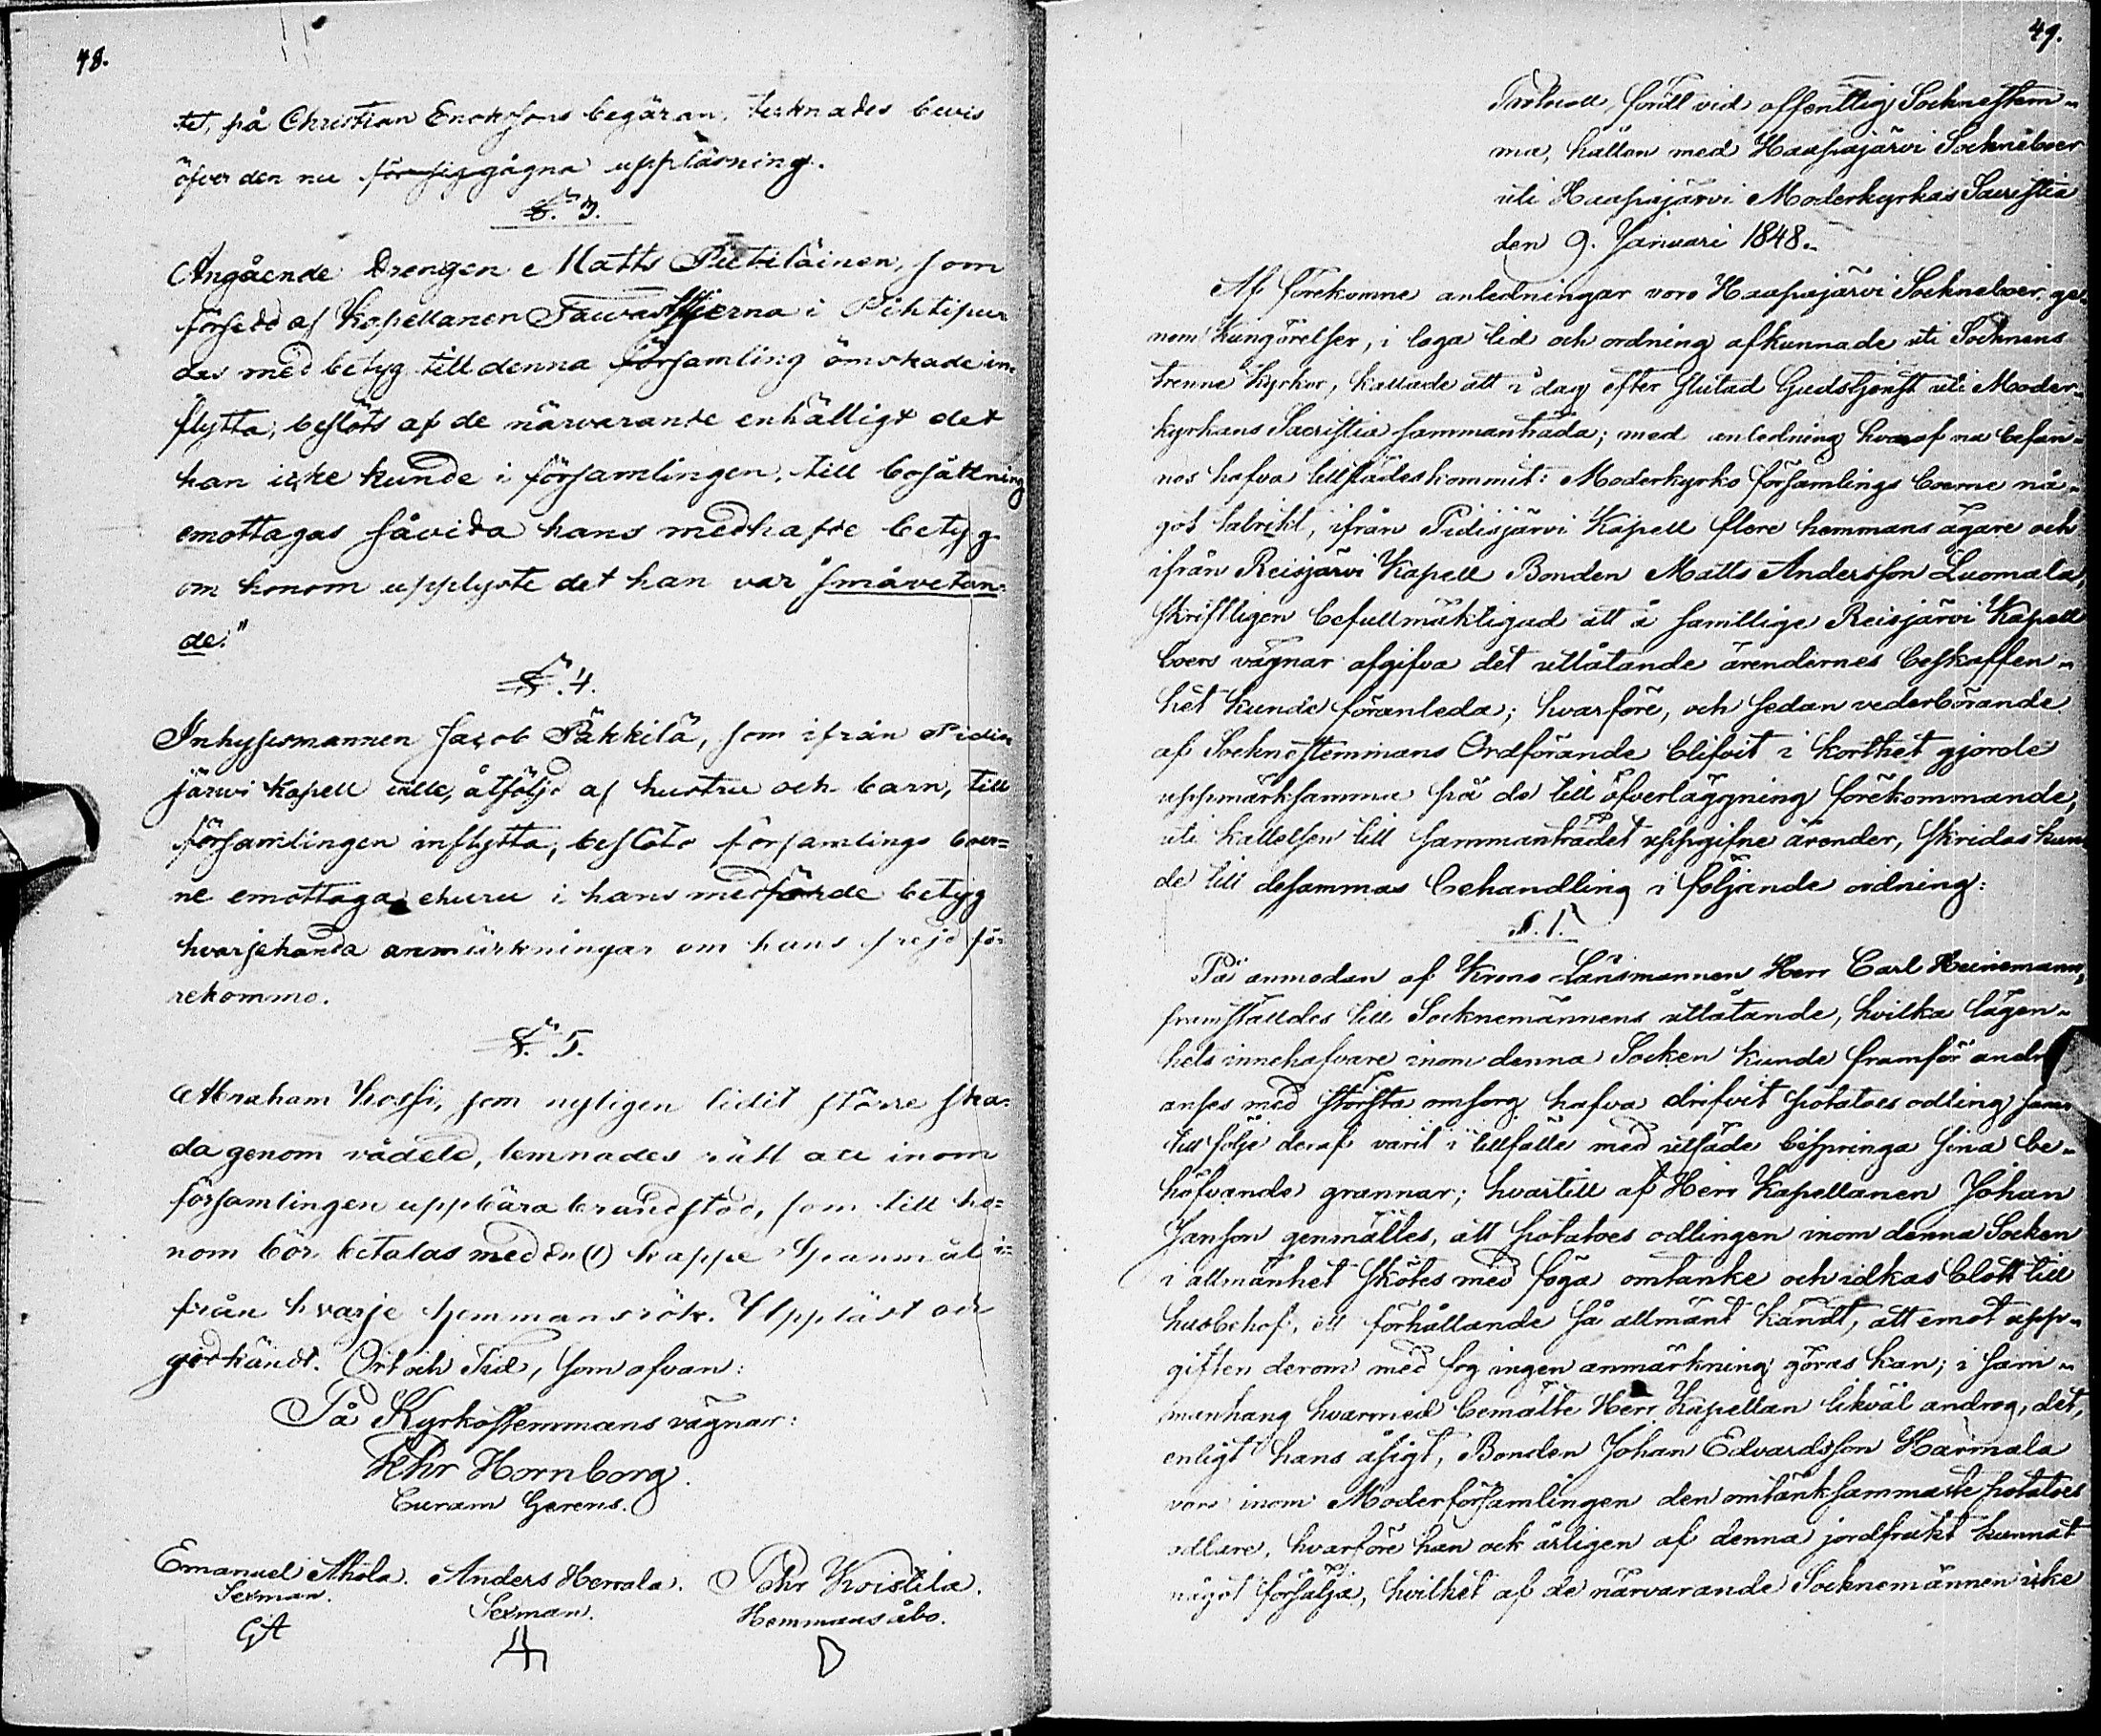 48.
tet, på Christian Enoksons begäran, tecknades bevis
öfver den nu för sig gågna uppläsning.
§. 3.
Angående Drengen Matts Pietiläinen, som
försedd af Kapellanen Tawaststjerna i Pihtipu-
das med betyg till denna församling önskade in-
flytta, beslöts af de närvarande enhälligt det
han icke kunde i församlingen till bosättning
emottagas såvida hans medhafde betyg
om honom upplyste det han var "småvetan-
de."
§. 4.
Inhysesmannen Jacob Päkkilä, som ifrån Pidis-
järwi Kapell ville, åtföljd af hustru och barn, till
församlingen inflytta, beslöto församlings boer=
ne emottaga ehuru i hans medförde betyg
hvarjehanda anmärkningar om hans frejd fö-
rekommo.
§. 5.
Abraham Kossi, som nyligen lidit större ska-
da genom vådeld, lemnades rätt att inom
församlingen uppbära brandstod, som till ho=
nom bör betalas med en (1) kappe Spanmål i=
från hvarje hemmansrök. Uppläst och
godkändt. Ort och Tid, som ofvan:
På Kyrkostemmans vägnar:
Hornborg.
Curam Gerens.
Emanuel Ahola. Anders Herrala. Pehr Koistila.
Sexman. Sexman. Hemmansåbo.
49.
Protocoll, fördt vid offentlig Sockneštem-
ma, hållen med Haapajärvi Sockneboer
uti Haapajärvi Moderkyrkas Sacristia
den 9. Januari 1848.
Af förekomne anledningar voro Haapajärvi Sockneboer, ge-
nom Kungörelser, i laga tid och ordning afkunnade uti Socknens
trenne Kyrkor, kallade att i dag efter slutad Gudstjenst uti Moder-
kyrkans Sacristia sammanträda; med anledning hvaraf nu befun-
nos hafva tillstädeskommit: Moderkyrko församlings boerne nå-
got talrikt, ifrån Pidisjärvi Kapell flere hemmans ägare och
ifrån Reisjärvi Kapell Bonden Matts Andersson Luomala,
skriftligen befullmäktigad att å samtlige Reisjärvi Kapell
boers vägnar afgifva det utlåtande ärendernes beskaffen-
het kunde föranleda; hvarföre, och sedan vederbörande
af Socknestemmans Ordförande blifvit i korthet gjorde
uppmärksamma på de till öfverläggning förekommande,
uti kallelsen till sammanträdet uppgifne ärender, skridas kun-
de till desammas behandling i följande ordning:
§. 1.
På anmodan af Krono Länsmannen Herr Carl Heinemann,
framställdes till Socknemännens utlåtande, hvilka lägen-
hets innehafvare inom denna Socken kunde framför andra
anses med största omsorg hafva drifvit potatoes odling samt
till följe deraf varit i tillfälle med utsäde bispringa sina be-
höfvande grannar; hvartill af Herr Kapellanen Johan
Janson genmältes, att potatoes odlingen inom denna Socken
i allmänhet skötes med föga omtanke och idkas blott till
husbehof, ett förhållande så allmänt kändt, att emot upp-
giften derom med fog ingen anmärkning göras kan; i sam-
manhang hvarmed bemälte Herr Kapellan likväl androg, det,
enligt hans åsigt, Bonden Johan Edvardsson Harmala
vore inom Moderförsamlingen den omtänksammaste potatoes
odlare, hvarföre han ock årligen af denna jordfrukt kunnat
något försälja, hvilket af de närvarande Socknemännen icke